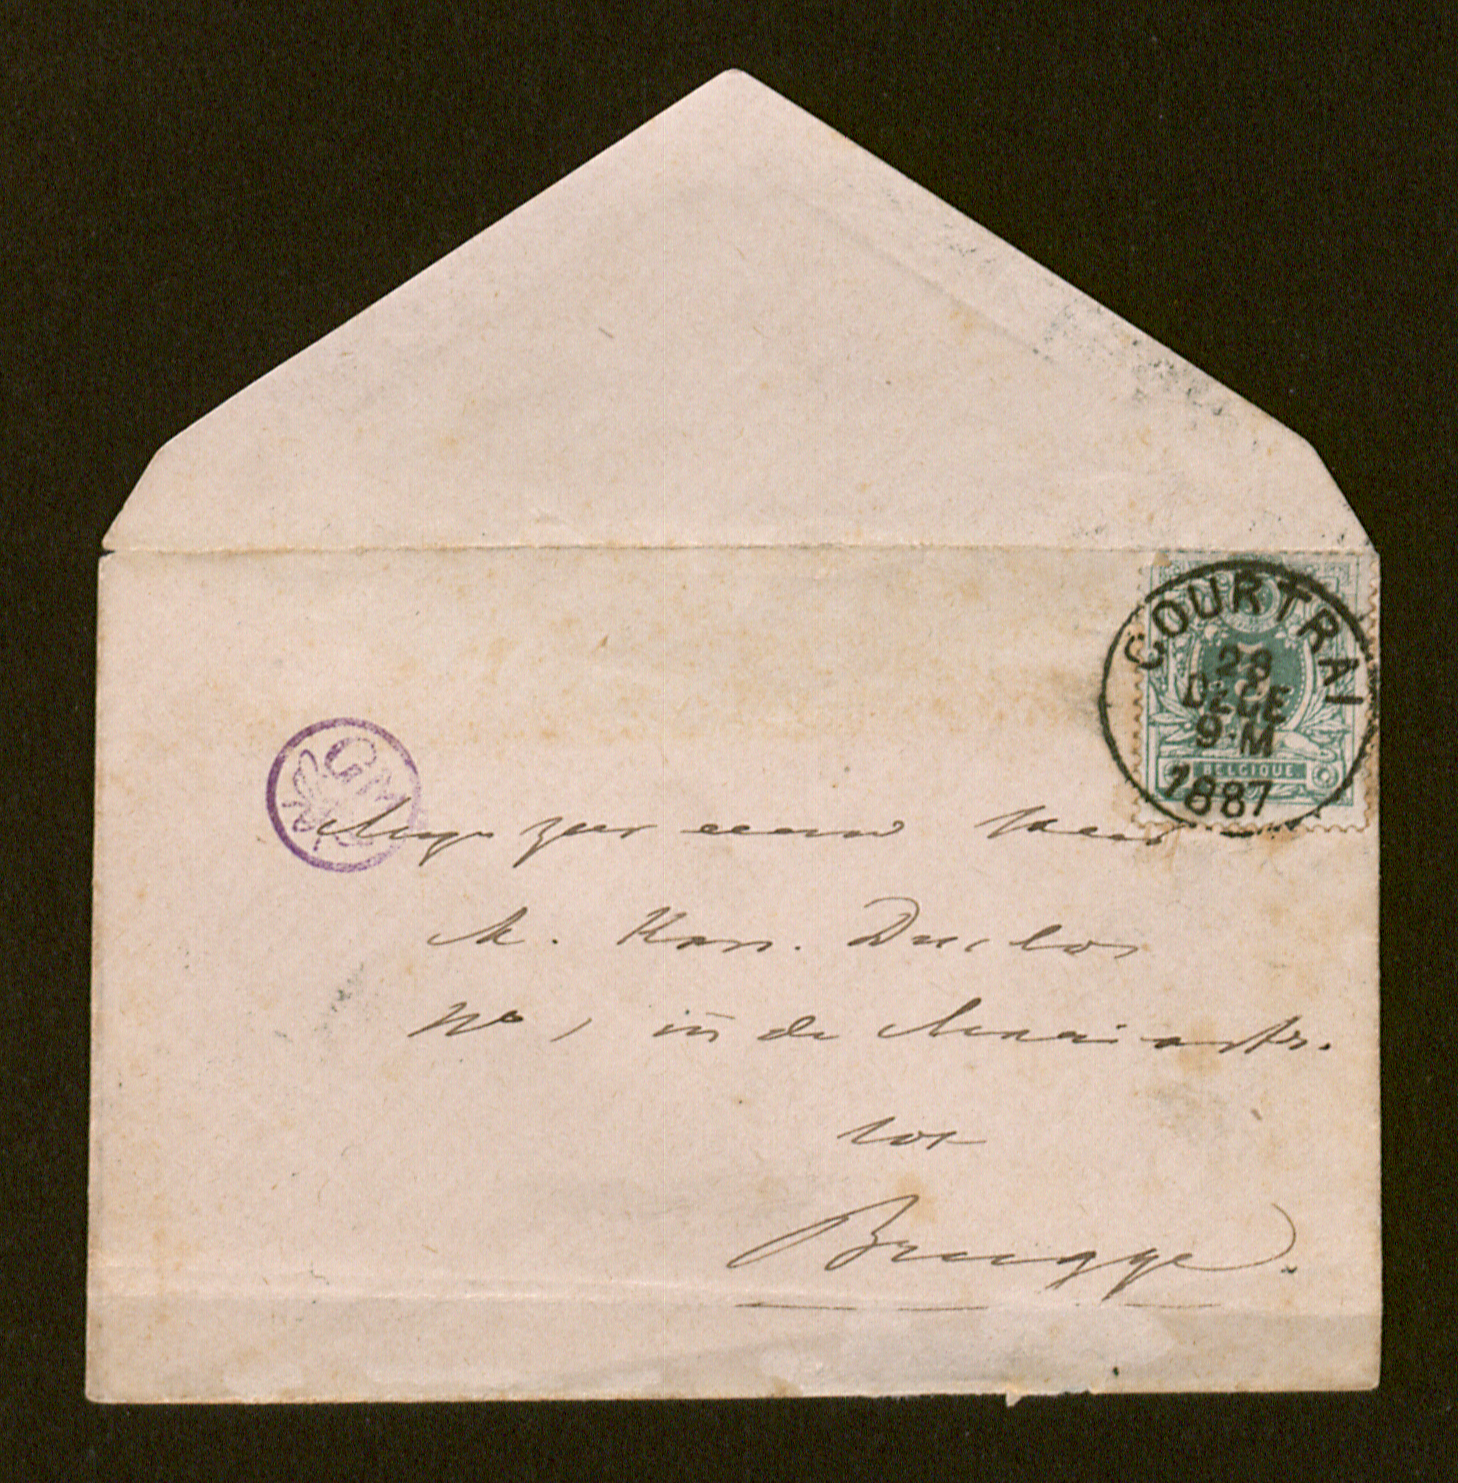 COURTRAI
28
DECE
9-M
1887
BELGIQUE
Mijn zeer eerw Heer
M. Kan. Duclos
Nº 1 in de
tot
Brugge.